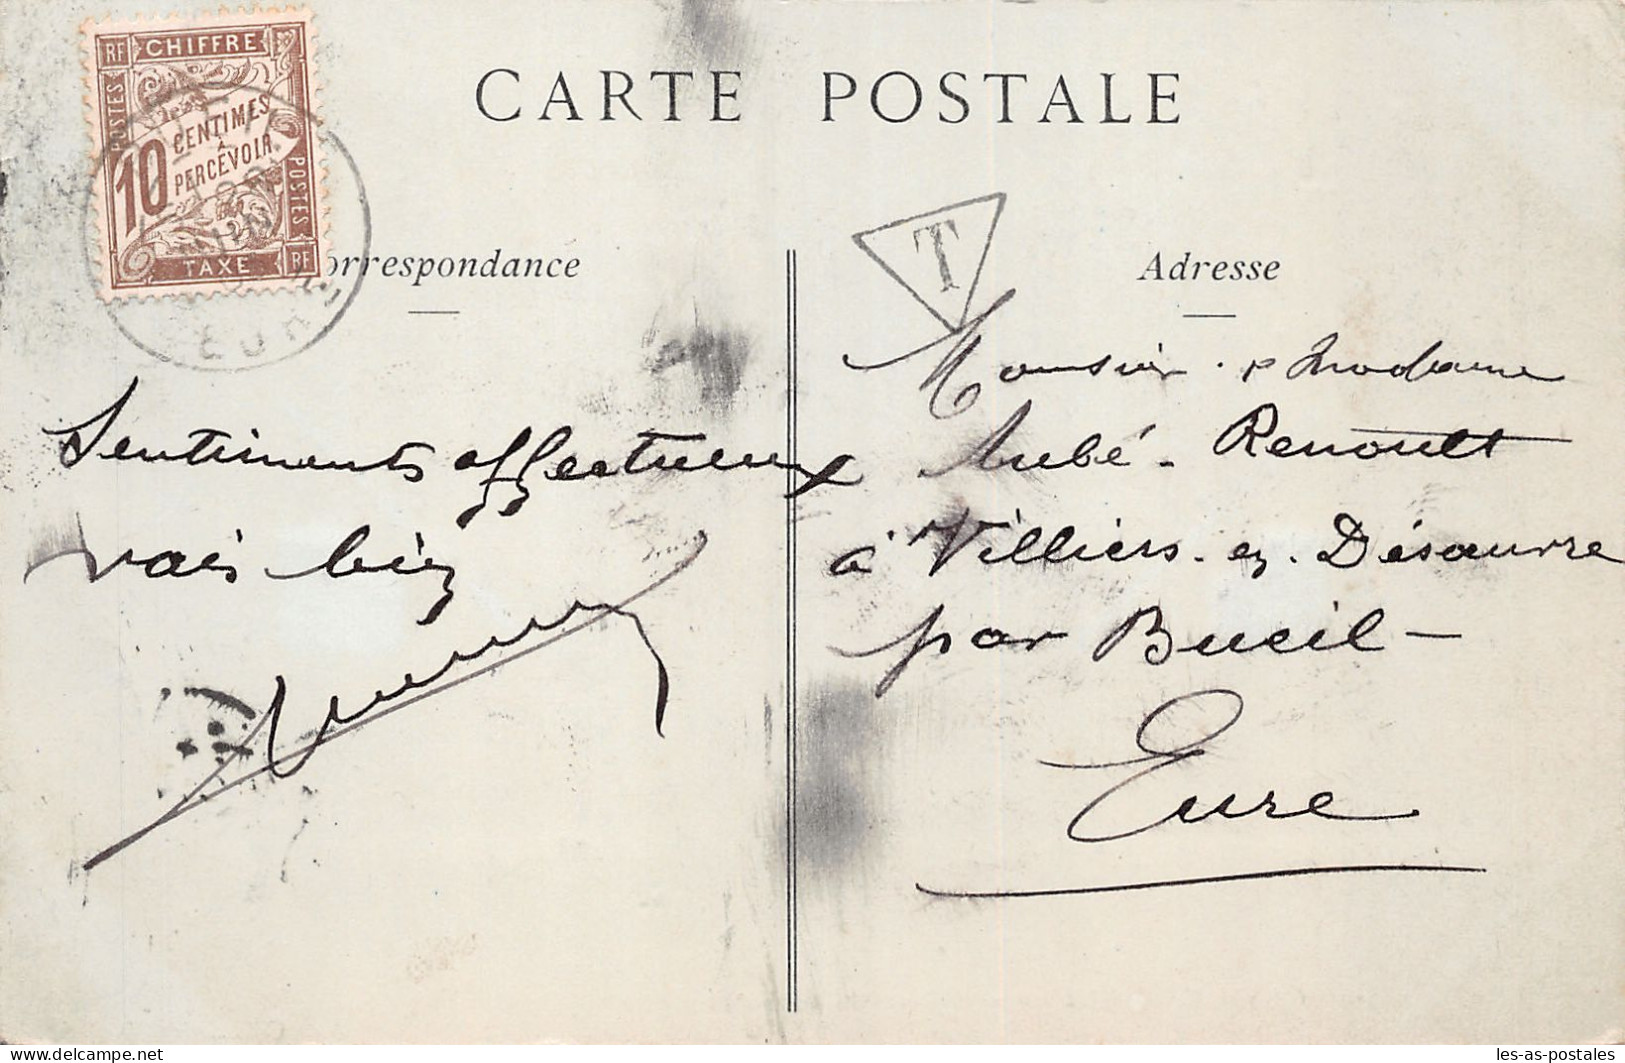 RF CHIFFRE RF
POSTES
10 CENTIMES
À
PERCEVOIR
POSTES
TAXE RF
EURE
CARTE POSTALE
orrespondance
Sentiments affectueux
vais bien
T
Adresse
Monsieur & Madame
Aubé - Renoult
à Villiers - en - Désœuvre
par Bueil -
Eure
delcampe.net
les-as-postales